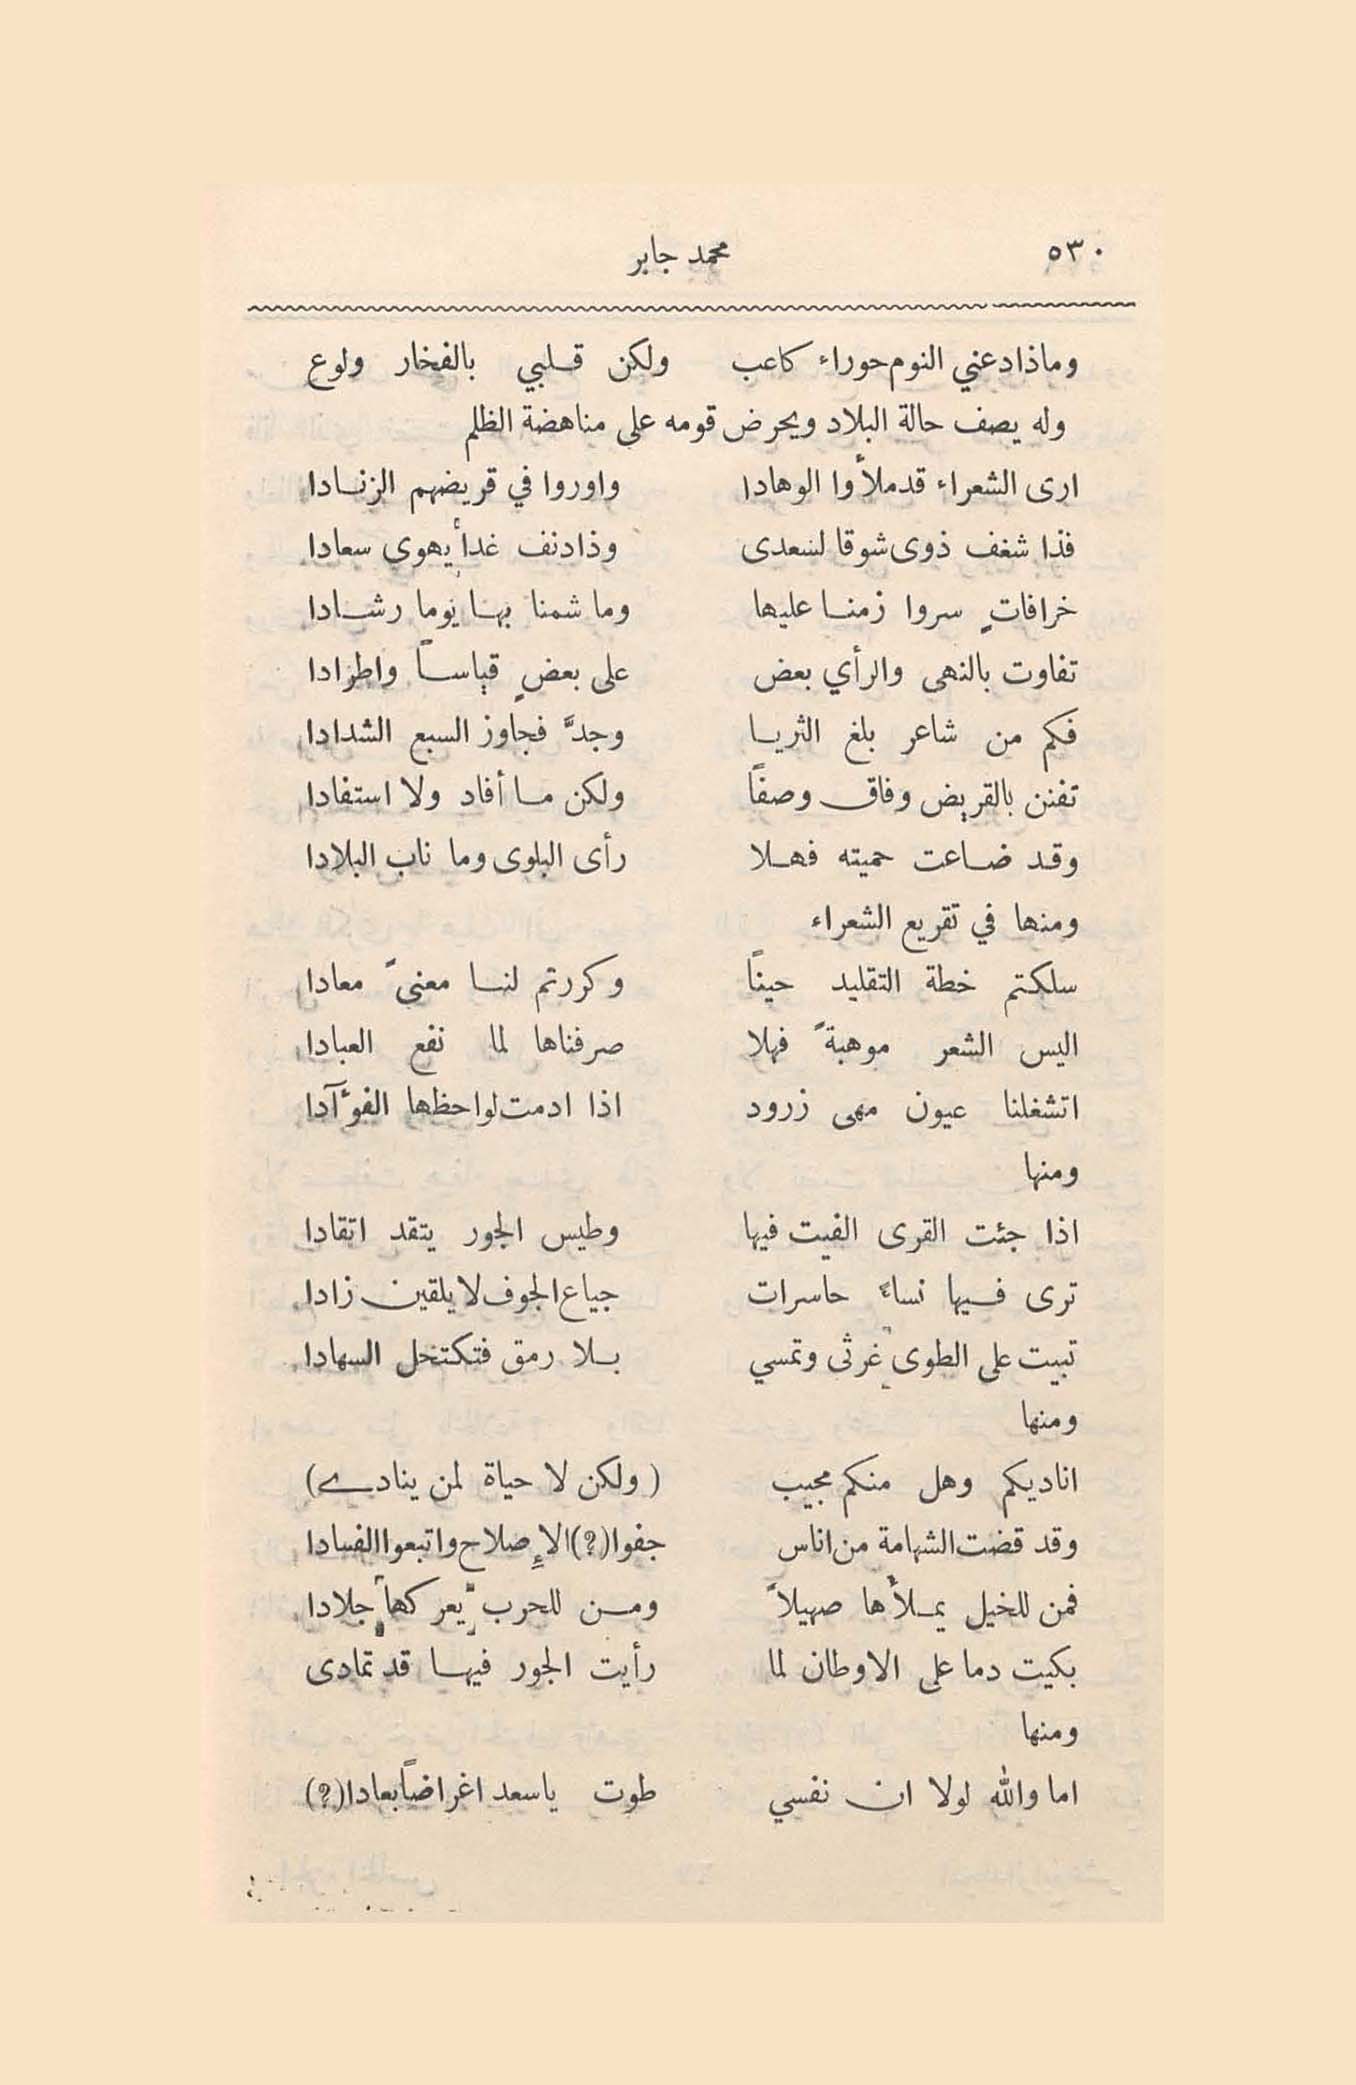 ٥٣٠ محمد جابر
وماذاد عني النوم حوراء كاعب ولكن قلبي بالفخار ولوع
وله يصف حالة البلاد ويحرض قومه على مناهضة الظلم
ارى الشعراء قد ملأوا الوهادا واوروا في قريضهم الزنادا
فذا شغف ذوى شوقا لسعدى وذا دنف غدا يهوى سعادا
خرافاتٍ سروا زمنا عليها وما شمنا بها يوما رشادا
تفاوت بالنهى والرأي بعض على بعضٍ قياساً واطرادا
فكم من شاعر بلغ الثريا وجدَّ فجاوز السبع الشدادا
تفنن بالقريض وفاق وصفاً ولكن ما أفاد ولا استفادا
وقد ضاعت حميته فهلا رأى البلوى وما ناب البلادا
ومنها في تقريع الشعراء
سلكتم خطة التقليد حيناً وكررتم لنا معنىً معادا
اليس الشعر موهبةً فهلا صرفناها لما نفع العبادا
اتشغلنا عيون مهى زرود اذا ادمت لواحظها الفؤآدا
ومنها
اذا جئت القرى الفيت فيها وطيس الجور يتقد اتقادا
ترى فيها نساءً حاسرات جياع الجوف لا يلقين زادا
تبيت على الطوى غرثى وتمسي بلا رمق فتكتحل السهادا
ومنها
اناديكم وهل منكم مجيب (ولكن لا حياة لمن ينادي)
وقد قضت الشهامة من اناس جفوا(؟)الإصلاح واتبعوا الفسادا
فمن للخيل يملأها صهيلاً ومن للحرب يعركها جلادا
بكيت دما على الاوطان لما رأيت الجور فيها قد تمادى
ومنها
اما والله لولا ان نفسي طوت ياسعد اغراضاً بعادا(؟)